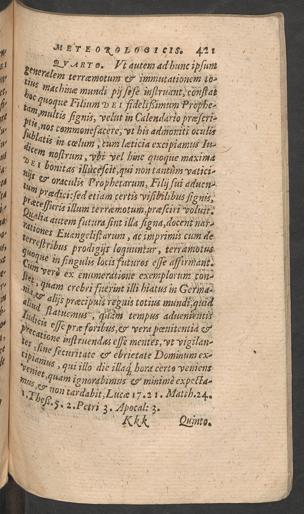 METEOROLOGICIS. 421
QVARTO. Vt autem ad hunc ipsum
generalem terræmotum & immutationem to-
tius machinæ mundi pij sese instruant, constat
hoc quoque Filium DEI fidelissimum Prophe-
tam, multis signis, velut in Calendario præscri-
ptis, nos commonefacere, vt his admoniti oculis
sublatis in cœlum, cum læticia excipiamus Iu-
dicem nostrum, vbi vel hinc quoque maxima
DEI bonitas illucescit, qui non tantùm vatici-
nijs & oraculis Prophetarum, Filij sui aduen-
tum prædici: sed etiam certis visibilibus signis,
præcessuris illum terræmotum, præsciri voluit.
Qualia autem futura sint illa signa, docent nar-
rationes Euangelistarum, ac imprimis cum de
terrestribus prodigijs loquuntur, terræmotus
quoque in singulis locis futuros esse affirmant.
Cum verò ex enumeratione exemplorum con-
stet, quam crebri fuerint illi hiatus in Germa-
nia, & alijs præcipuis reguis totius mundi, quid
aliud statuemus, quàm tempus aduenientis
Iudicis esse præ foribus, & vera pœnitentia &
precatione instruendas esse mentes, vt vigilan-
ter sine securitate & ebrietate Dominum ex-
cipiamus, qui illo die illaq; hora certò veniens
veniet, quam ignorabimus & minimè expecta-
mus, & non tardabit, Lucæ 17. 21. Matth. 24.
1. Thess. 5. 2. Petri 3. Apocal: 3.
Kkk Quinto.